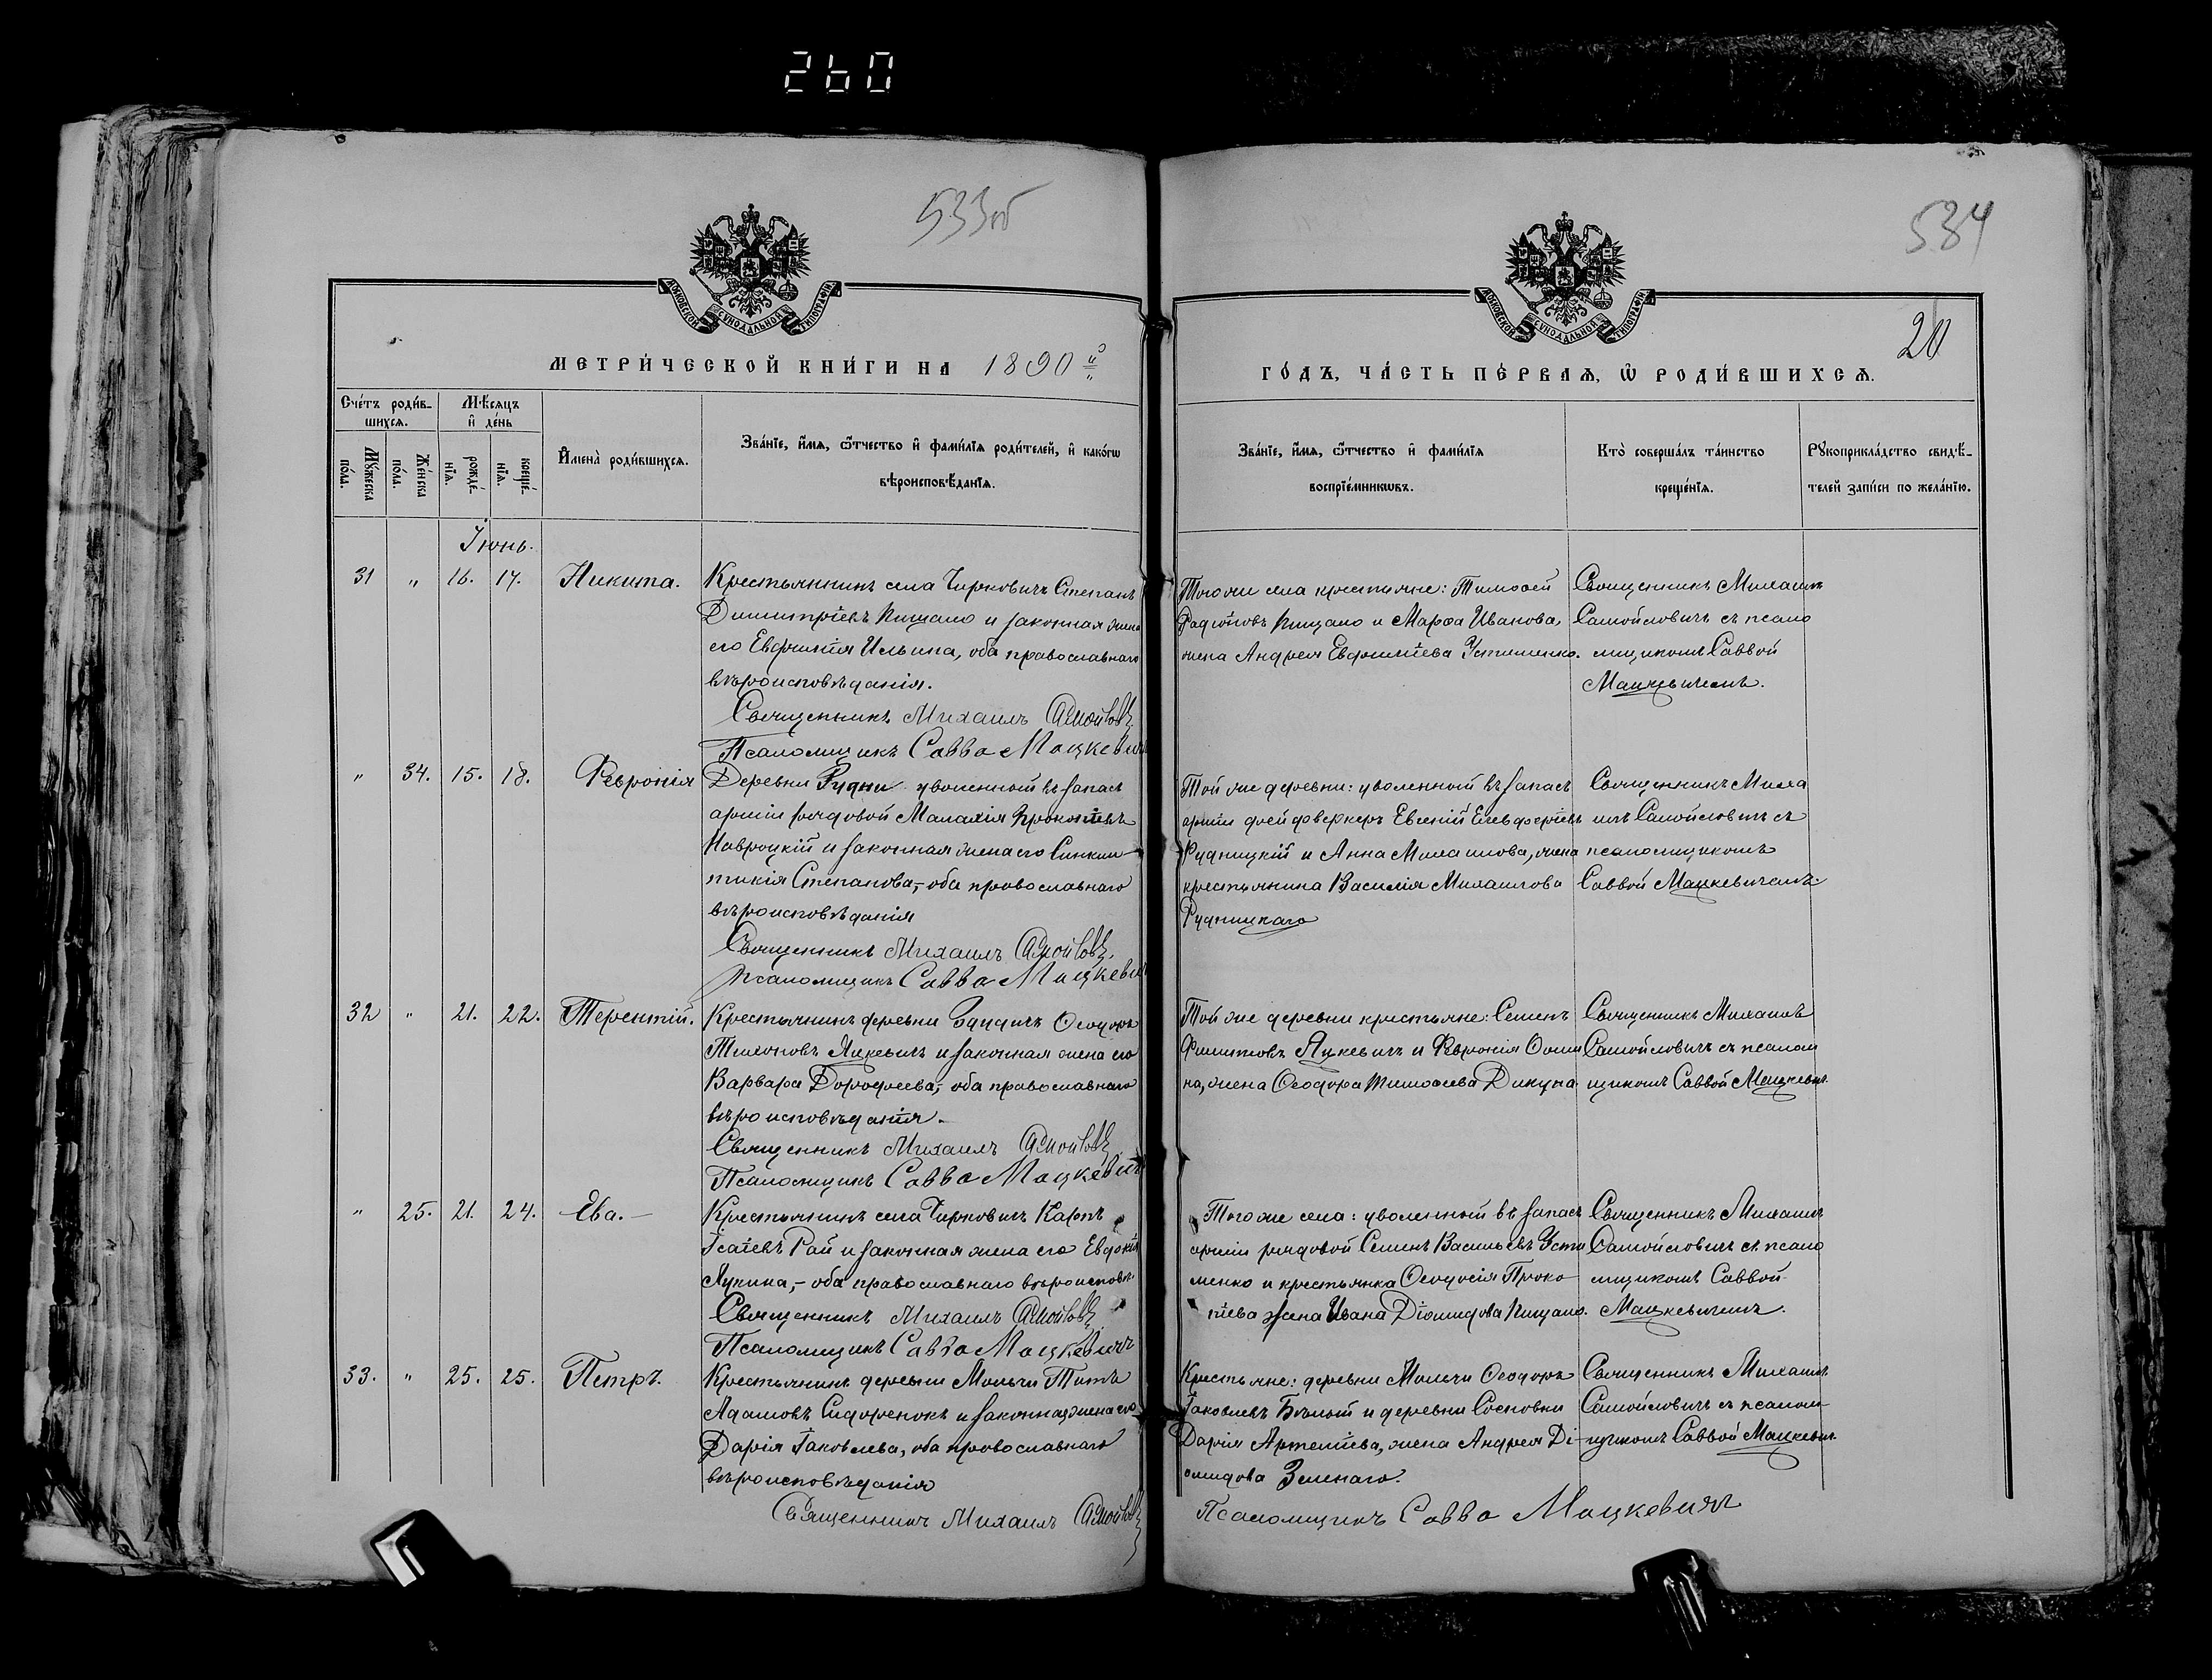 260
533об
534
20
МОСКОВСКОЙ СѴНОДАЛЬНОЙ ТИПОГРАФІИ
МОСКОВСКОЙ СѴНОДАЛЬНОЙ ТИПОГРАФІИ
МЕТРИ́ЧЕСКОЙ КНИ́ГИ НА 1890 й
ГО́ДЪ, ЧА́СТЬ ПЕ́РВАѦ, Ѡ҆ РОДИ́ВШИХСѦ.
Сче́тъ роди́в-
шихсѧ.
Мѣ́сѧцъ
и҆ де́нь
Мꙋ́жеска
по́ла.
Же́нска
по́ла.
рожде́-
нїѧ.
креще́-
нїѧ.
И҆мена̀ роди́вшихсѧ.
Зва́нїе, и҆́мѧ, ѻ҆́тчество и҆ фами́лїѧ роди́телей, и҆ како́гѡ
вѣроисповѣ́данїѧ.
Зва́нїе, и҆́мѧ, ѻ҆́тчество и҆ фами́лїѧ
воспрїе́мникѡвъ.
Кто̀ соверша́лъ та́инство
креще́нїѧ.
Рꙋкоприкла́дство свидѣ́-
телей за́писи по жела́нїю.
Іюнь.
31 " 16. 17. Никита.
Крестьянинъ села Чирковичъ Степанъ
Димитріевъ Пищало и законная жена
его Евфимія Ильина, оба православнаго
вѣроисповѣданія.
Священникъ Михаилъ Самойлов
Псаломщикъ Савва Мацкевич
Того же села крестьяне: Тимофей
Родіоновъ Пищало и Марѳа Иванова,
жена Андрея Евфиміева Устименко.
Священникъ Михаилъ
Самойловичъ съ псало
мщикомъ Саввой
Мацкевичемъ.
" 34. 15. 18. Февронія
Деревни Рудни уволенный въ запасъ
арміи рядовой Малахія Прокопіевъ
Навроцкій и законная жена его Синкли
тикія Степанова, - оба православнаго
вѣроисповѣданія
Священникъ Михаилъ Самойлов
Псаломщикъ Савва Мацкевич
Той же деревни: уволенный въ запасъ
арміи фейерверкеръ Евгеній Елевферіевъ
Рудницкій и Анна Михаилова, жена
крестьянина Василія Михаилова
Рудницкаго
Священникъ Миха
илъ Самойловичъ съ
псаломщикомъ
Саввой Мацкевичемъ.
32 " 21. 22. Терентій.
Крестьянинъ деревни Здудичъ Ѳеодоръ
Тихоновъ Яцкевичъ и законная жена его
Варвара Дорофеева, - оба православнаго
вѣроисповѣданія.
Священникъ Михаилъ Самойлов
Псаломщикъ Савва Мацкевич
Той же деревни крестьяне: Семенъ
Филиповъ Яцкевичъ и Февронія Ѳоми
на, жена Ѳеодора Тимоѳеева Дикуна
Священникъ Михаилъ
Самойловичъ съ псалом
щикомъ Саввой Мацкевич.
" 25. 21. 24. Ева. -
Крестьянинъ села Чирковичъ Карпъ
Исаіевъ Рай и законная жена его Евдокія
Лукина, - оба православнаго вѣроисповѣ.
Священникъ Михаилъ Самойлов
Псаломщикъ Савва Мацкевичъ
Того же села: уволенный въ запасъ
арміи рядовой Семенъ Васильевъ Усти
менко и крестьянка Ѳеодосія Проко
піева жена Ивана Діомидова Пищало.
Священникъ Михаилъ
Самойловичъ съ псало
мщикомъ Саввой
Мацкевичемъ.
33. " 25. 25. Петръ.
Крестьянинъ деревни Мольчи Титъ
Адамовъ Сидоренокъ и законная жена его
Дарія Іаковлева, оба православнаго
вѣроисповѣданія
Священникъ Михаилъ Самойлов
Крестьяне: деревни Мольчи Ѳеодоръ
Іаковлевъ Бѣлый и деревни Сосновки
Дарія Артеміева, жена Андрея Ді-
омидова Зеленаго.
Священникъ Михаилъ
Самойловичъ съ псалом-
щикомъ Саввой Мацкевич.
Псаломщикъ Савва Мацкевичъ